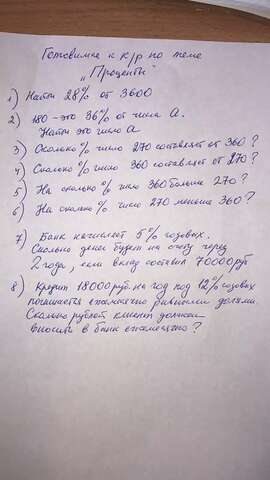 Готовимся к к/р по теме
„Проценты"
1) Найти 28% от 3600
2) 180 - это 36% от числа А.
Найти это число А
3) Сколько % число 270 составляет от 360?
4) Сколько % число 360 составляет от 270?
5) На сколько % число 360 больше 270?
6) На сколько % число 270 меньше 360?
7) Банк начисляет 5% годовых.
Сколько денег будет на счету через
2 года, если вклад составил 70000 руб
8) Кредит 18000 руб. на год под 12% годовых
погашается ежемесячно равными долями.
Сколько рублей клиент должен
вносить в банк ежемесячно?